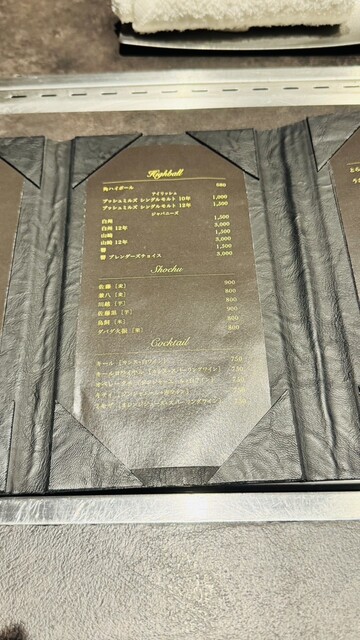 Highball
角ハイボール 680
アイリッシュ
ブッシュミルズ シングルモルト 10年 1,000
ブッシュミルズ シングルモルト 12年 1,200
ジャパニーズ
白州 1,500
白州 12年 3,000
山崎 1,500
山崎 12年 3,000
響 1,500
響 ブレンダーズチョイス 3,000
Shochu
佐藤 [麦] 900
兼八 [麦] 800
川越 [芋] 800
佐藤黒 [芋] 900
鳥飼 [米] 800
ダバダ火振 [栗] 800
Cocktail
キール 750
キールロワイヤル 750
ミモザ